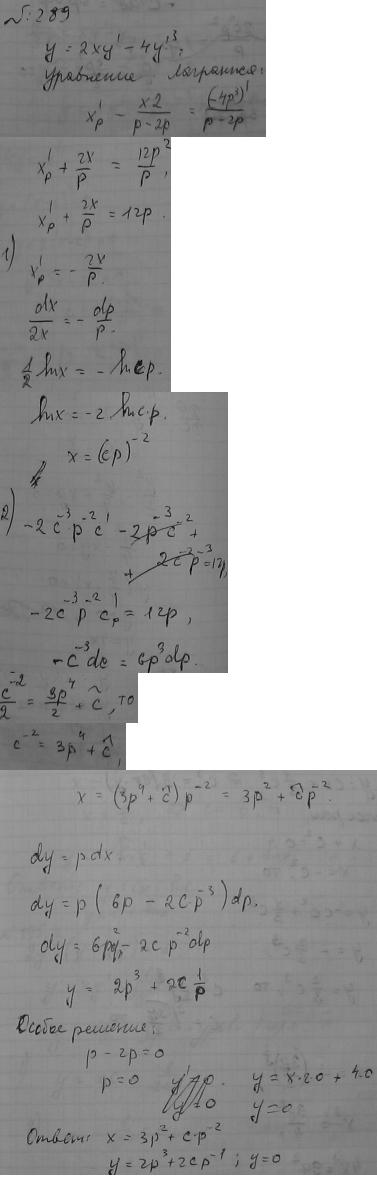 №: 289
y = 2xy' - 4y'³;
Уравнение Лагранжа:
x'ₚ - x2/(p-2p) = (-4p³)'/(p-2p)
x'ₚ + 2x/p = 12p²/p,
x'ₚ + 2x/p = 12p.
1) x'ₚ = - 2x/p.
dx/2x = - dp/p.
1/2 ln x = - ln cp.
ln x = -2 ln c·p.
x = (cp)⁻²
2) -2c⁻³p⁻²c' - 2p⁻³c⁻² +
+ 2c⁻²p⁻³ = 12p,
-2c⁻³p⁻²c'ₚ = 12p,
-c⁻³dc = 6p³dp.
c⁻²/2 = 3p⁴/2 + c̃, то
c⁻² = 3p⁴ + c̃,
x = (3p⁴ + c̃)p⁻² = 3p² + c̃p⁻².
dy = pdx
dy = p(6p - 2cp⁻³)dp.
dy = 6p² - 2cp⁻²dp
y = 2p³ + 2c 1/p
Особое решение:
p - 2p = 0
p = 0 y = x·2·0 + 4·0
y = 0
Ответ: x = 3p² + c·p⁻²
y = 2p³ + 2cp⁻¹; y = 0